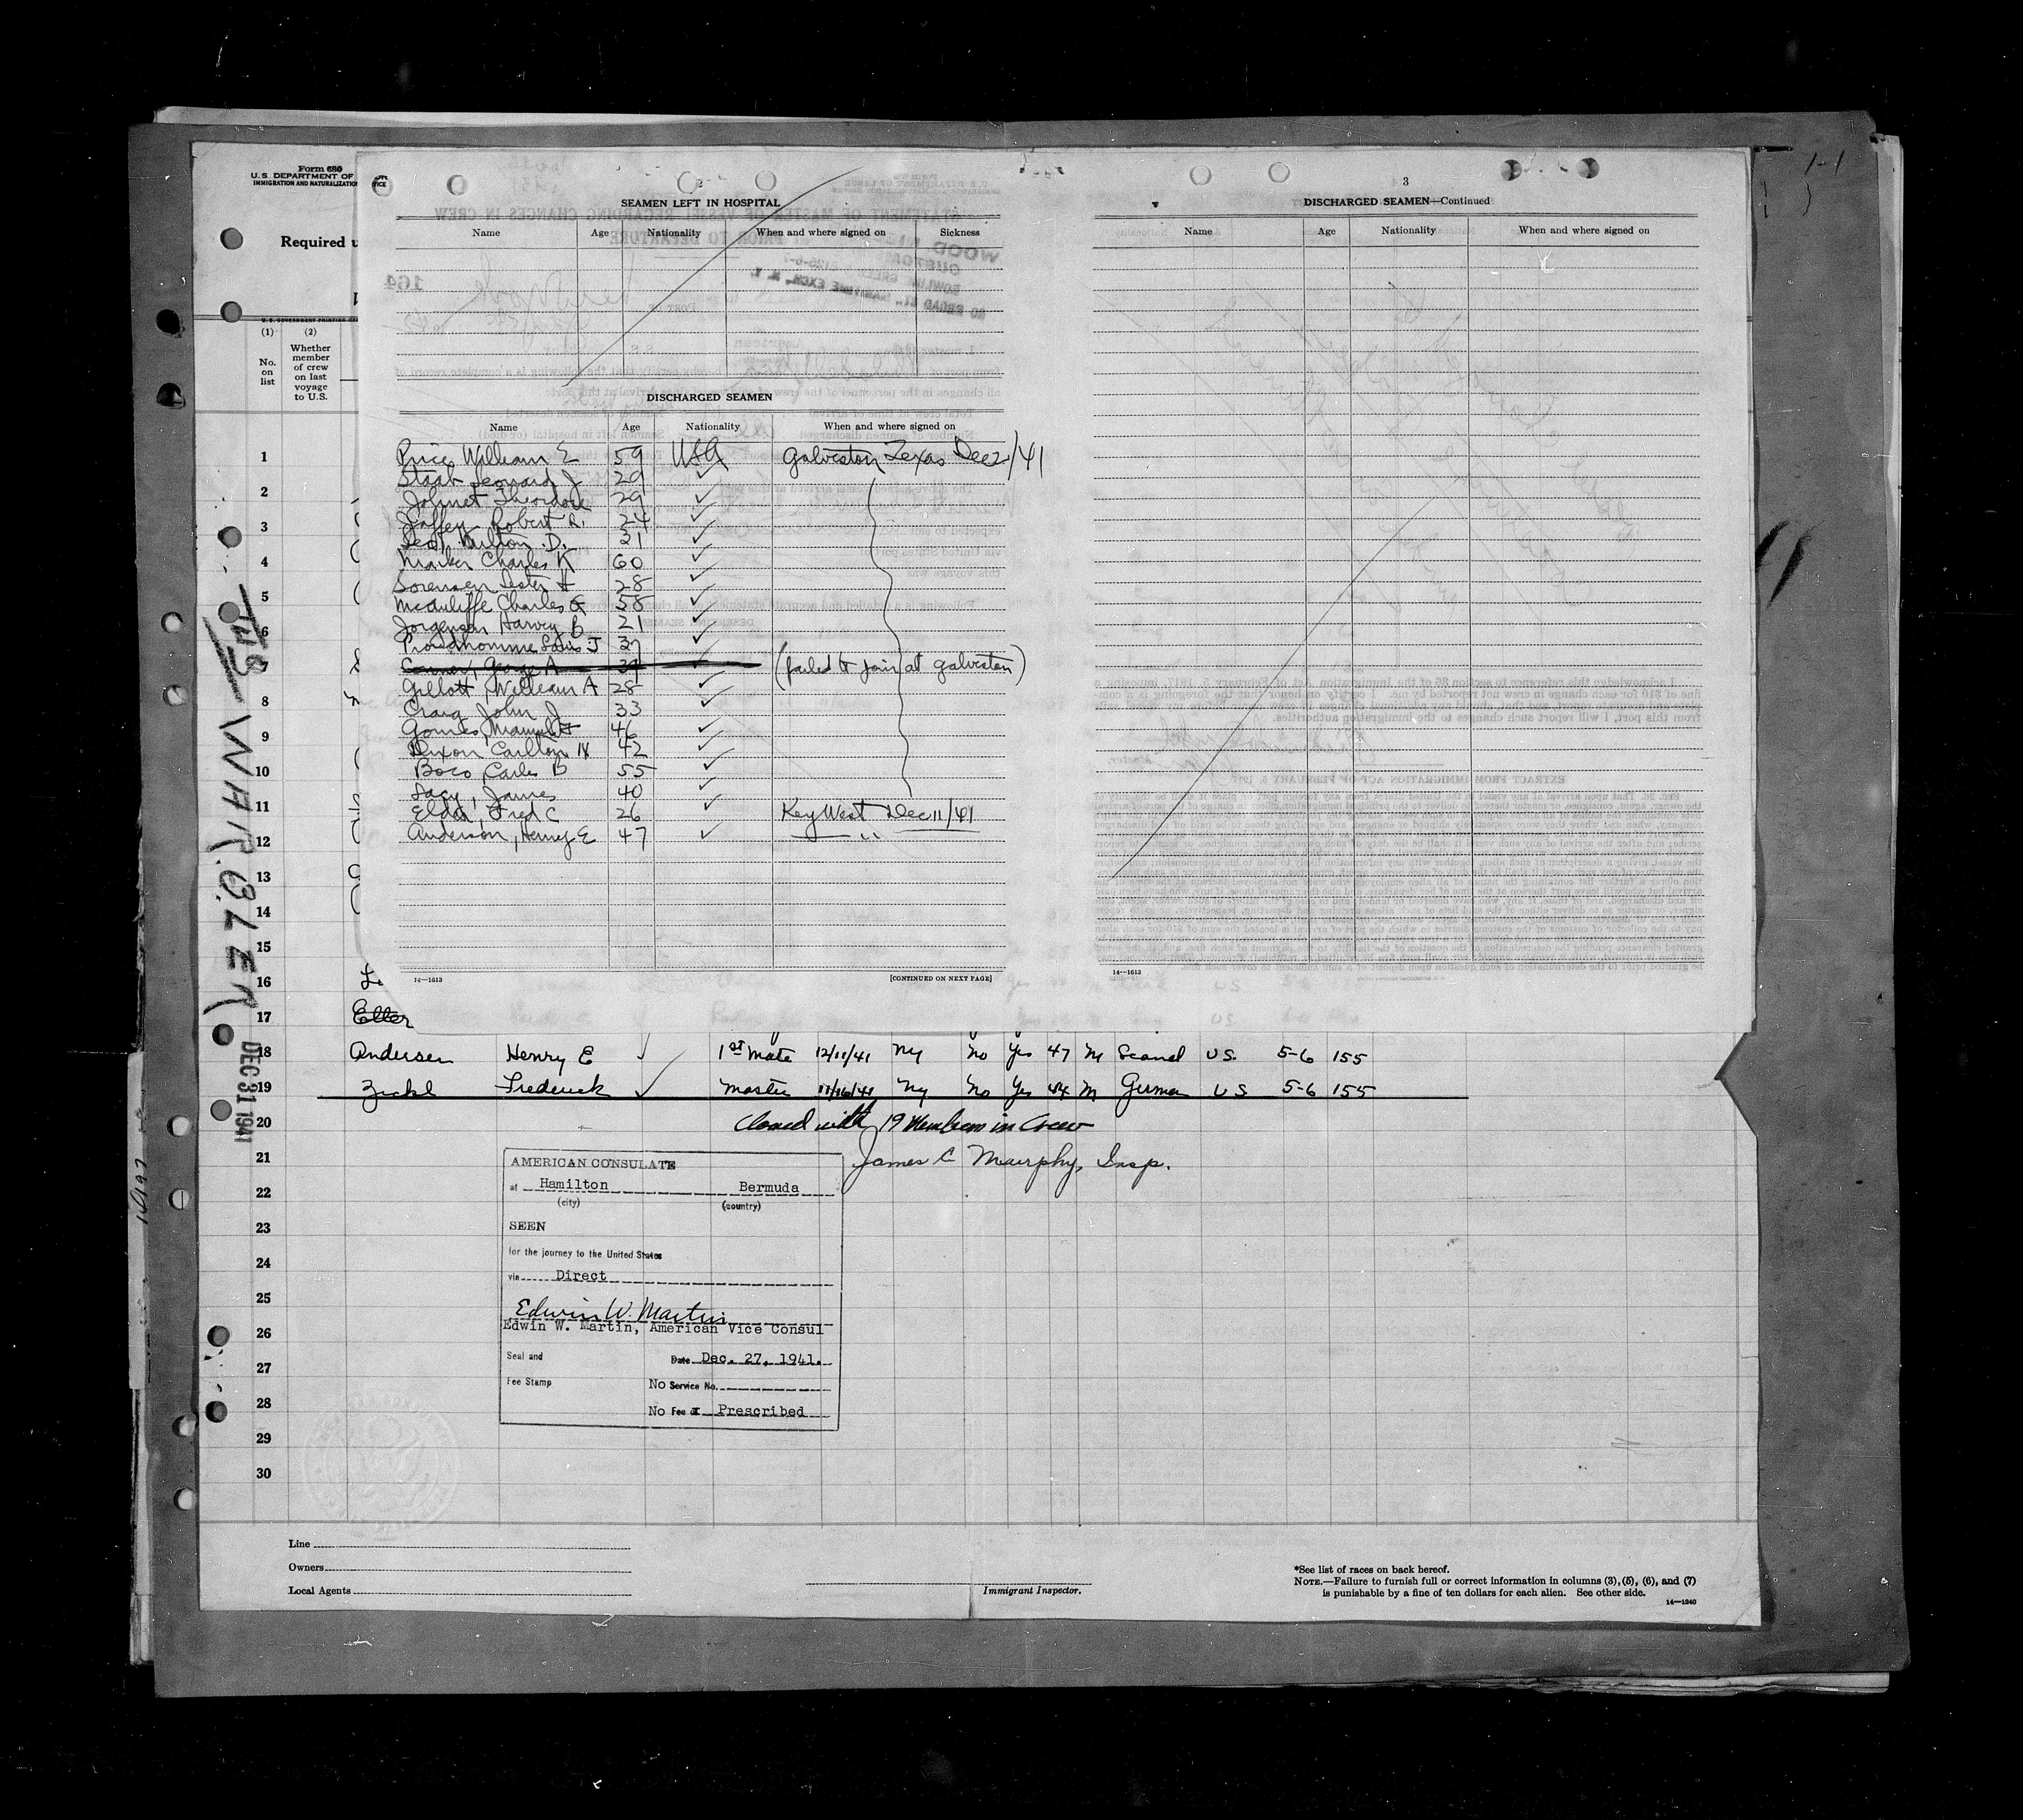 Form 680
U.S. DEPARTMENT OF
IMMIGRATION AND NATURALIZATION
Required u
(1) (2)
No. on list
Whether member of crew on last voyage to U.S.
2
SEAMEN LEFT IN HOSPITAL
Name Age Nationality When and where signed on Sickness
DISCHARGED SEAMEN
Name Age Nationality When and where signed on
Price William E 59 USA Galveston Texas Dec 2/41
Staab Leonard J 29 ✓
Theodore 29 ✓
Jaffer Robert R. 24 ✓
Milton D. 31 ✓
Charles K 60 ✓
Sorensen Lester 28 ✓
McAuliffe Charles G 58 ✓
Jorgensen Harvey B 21 ✓
Proudhomme Louis J 37 ✓
Connor, George A 39 ✓ (failed to join at Galveston)
Gillott, William A 28 ✓
Craig John J 33 ✓
Gomes, Manuel 46 ✓
Dixon Carlton W 42 ✓
Boco, Carlos B 55 ✓
Lacy, James 40 ✓
Elder, Fred C 26 ✓ Key West Dec 11/41
Anderson, Henry E 47 ✓ "
14—1613 [CONTINUED ON NEXT PAGE]
3
DISCHARGED SEAMEN—Continued
Name Age Nationality When and where signed on
14—1613
1
2
3
4
5
6
8
9
10
11
12
13
14
15
16
17
18 Andersen Henry E ✓ 1st Mate 12/11/41 NY No Yes 47 M Scand US. 5-6 155
19 Zickl Frederick ✓ Master 11/16/41 NY No Yes 44 M German US 5-6 155
20 Closed with 19 Members in Crew
21 James C Murphy, Insp.
22
23
24
25
26
27
28
29
30
DEC 31 1941
AMERICAN CONSULATE
at Hamilton Bermuda
(city) (country)
SEEN
for the journey to the United States
via Direct
Edwin W. Martin
Edwin W. Martin, American Vice Consul
Seal and Date Dec. 27, 1941.
Fee Stamp No Service No.
No Fee Prescribed
Line
Owners
Local Agents
Immigrant Inspector.
*See list of races on back hereof.
NOTE.—Failure to furnish full or correct information in columns (3), (5), (6), and (7)
is punishable by a fine of ten dollars for each alien. See other side.
14—1240